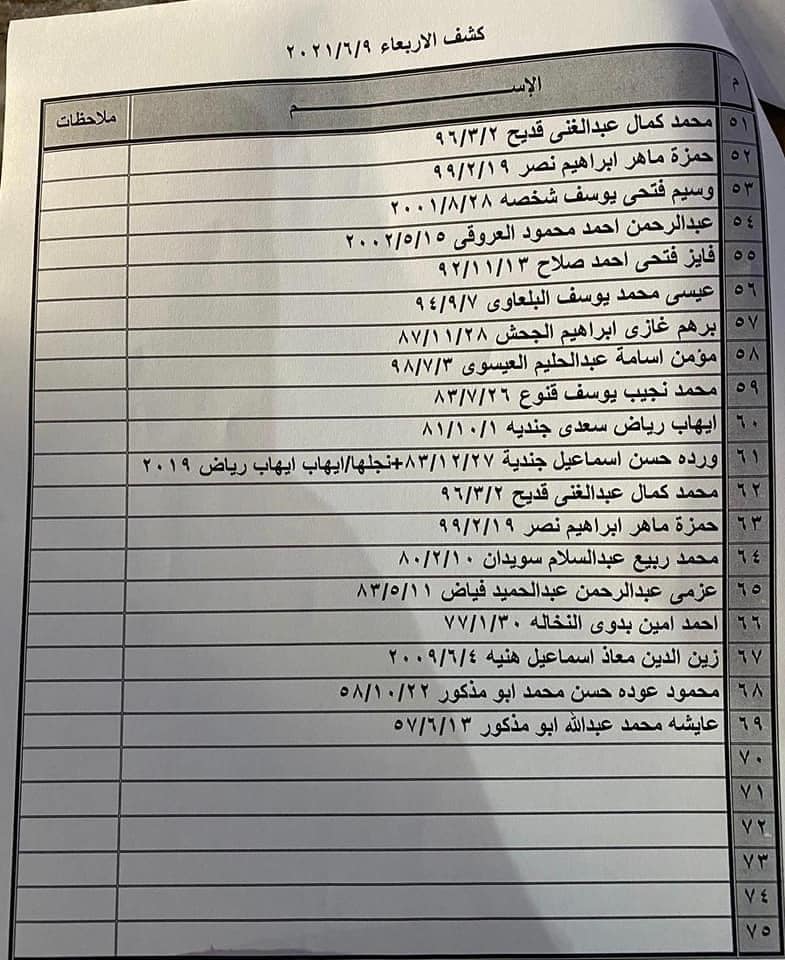 كشف الاربعاء ٢٠٢١/٦/٩
م الإســـــــم ملاحظات
٥١ محمد كمال عبدالغنى قديح ٩٦/٣/٢
٥٢ حمزة ماهر ابراهيم نصر ٩٩/٢/١٩
٥٣ وسيم فتحى يوسف شخصه ٢٠٠١/٨/٢٨
٥٤ عبدالرحمن احمد محمود العروقى ٢٠٠٢/٥/١٥
٥٥ فايز فتحى احمد صلاح ٩٢/١١/١٣
٥٦ عيسى محمد يوسف البلعاوى ٩٤/٩/٧
٥٧ برهم غازى ابراهيم الجحش ٨٧/١١/٢٨
٥٨ مؤمن اسامة عبدالحليم العيسوى ٩٨/٧/٣
٥٩ محمد نجيب يوسف قنوع ٨٣/٧/٢٦
٦٠ ايهاب رياض سعدى جنديه ٨١/١٠/١
٦١ ورده حسن اسماعيل جندية ٨٣/١٢/٢٧+نجلها/ايهاب ايهاب رياض ٢٠١٩
٦٢ محمد كمال عبدالغنى قديح ٩٦/٣/٢
٦٣ حمزة ماهر ابراهيم نصر ٩٩/٢/١٩
٦٤ محمد ربيع عبدالسلام سويدان ٨٠/٢/١٠
٦٥ عزمى عبدالرحمن عبدالحميد فياض ٨٣/٥/١١
٦٦ احمد امين بدوى النخاله ٧٧/١/٣٠
٦٧ زين الدين معاذ اسماعيل هنيه ٢٠٠٩/٦/٤
٦٨ محمود عوده حسن محمد ابو مذكور ٥٨/١٠/٢٢
٦٩ عايشه محمد عبدالله ابو مذكور ٥٧/٦/١٣
٧٠
٧١
٧٢
٧٣
٧٤
٧٥